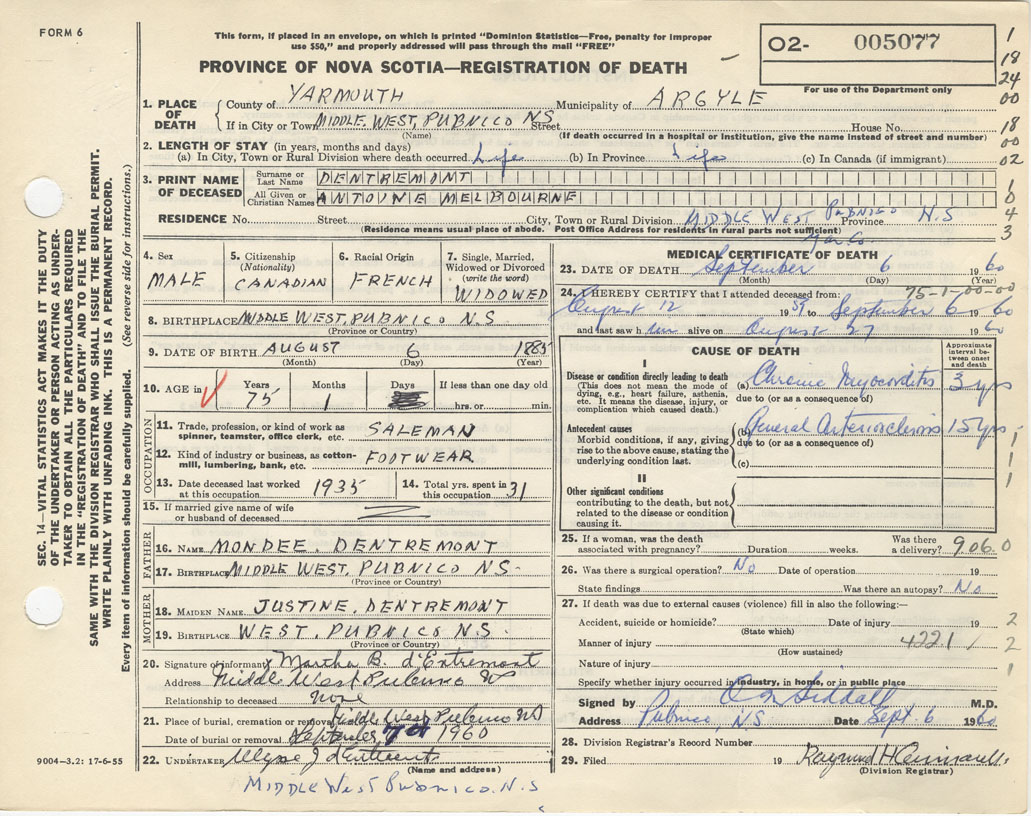 FORM 6
This form, if placed in an envelope, on which is printed "Dominion Statistics—Free, penalty for improper
use $50," and properly addressed will pass through the mail "FREE"
PROVINCE OF NOVA SCOTIA—REGISTRATION OF DEATH
02- 005077
For use of the Department only
1
18
24
00
18
00
02
1. PLACE OF DEATH
County of YARMOUTH Municipality of ARGYLE
If in City or Town MIDDLE, WEST, PUBNICO NS Street House No.
(Name) (If death occurred in a hospital or institution, give the name instead of street and number)
2. LENGTH OF STAY (in years, months and days)
(a) In City, Town or Rural Division where death occurred Life (b) In Province Life (c) In Canada (if immigrant)
3. PRINT NAME OF DECEASED
Surname or Last Name DENTREMONT
All Given or Christian Names ANTOINE MELBOURNE
RESIDENCE No. Street City, Town or Rural Division MIDDLE WEST PUBNICO N.S
(Residence means usual place of abode. Post Office Address for residents in rural parts not sufficient)
Yar Co.
4. Sex MALE
5. Citizenship (Nationality) CANADIAN
6. Racial Origin FRENCH
7. Single, Married, Widowed or Divorced (write the word) WIDOWED
8. BIRTHPLACE MIDDLE WEST, PUBNICO N S
(Province or Country)
9. DATE OF BIRTH AUGUST 6 1885
(Month) (Day) (Year)
10. AGE in Years 75 Months 1 Days If less than one day old hrs. or min.
OCCUPATION
11. Trade, profession, or kind of work as spinner, teamster, office clerk, etc. SALEMAN
12. Kind of industry or business, as cotton-mill, lumbering, bank, etc. FOOTWEAR
13. Date deceased last worked at this occupation 1935 14. Total yrs. spent in this occupation 31
15. If married give name of wife or husband of deceased
FATHER
16. NAME MONDEE. DENTREMONT
17. BIRTHPLACE MIDDLE WEST, PUBNICO NS.
(Province or Country)
MOTHER
18. MAIDEN NAME JUSTINE. DENTREMONT
19. BIRTHPLACE WEST, PUBNICO N S.
(Province or Country)
20. Signature of informant Martha B. d'Entremont
Address Middle West Pubnico NS
Relationship to deceased None
21. Place of burial, cremation or removal Middle West Pubnico NS
Date of burial or removal September 7th 1960
22. UNDERTAKER
(Name and address)
MIDDLE WEST PUBNICO. N.S
9004-3.2: 17-6-55
MEDICAL CERTIFICATE OF DEATH
23. DATE OF DEATH September 6 1960
(Month) (Day) (Year)
75-1-00-00
24. I HEREBY CERTIFY that I attended deceased from:
August 12 1959 to September 6 1960
and last saw him alive on August 27 1960
CAUSE OF DEATH
Approximate interval between onset and death
I
Disease or condition directly leading to death
(This does not mean the mode of dying, e.g., heart failure, asthenia, etc. It means the disease, injury, or complication which caused death.)
(a) Chronic Myocarditis 3 yrs
due to (or as a consequence of)
Antecedent causes
Morbid conditions, if any, giving rise to the above cause, stating the underlying condition last.
(b) General Arteriosclerosis 15 yrs
due to (or as a consequence of)
(c)
II
Other significant conditions
contributing to the death, but not related to the disease or condition causing it.
25. If a woman, was the death associated with pregnancy? Duration weeks. Was there a delivery? 906.0
26. Was there a surgical operation? No Date of operation 19
State findings Was there an autopsy? No
27. If death was due to external causes (violence) fill in also the following:—
Accident, suicide or homicide? Date of injury 19
(State which)
Manner of injury 422.1
(How sustained?)
Nature of injury
Specify whether injury occurred in industry, in home, or in public place
Signed by Siddall M.D.
Address Pubnico, N.S. Date Sept. 6 1960
28. Division Registrar's Record Number
29. Filed 19 Raymond H
(Division Registrar)
SEC. 14—VITAL STATISTICS ACT MAKES IT THE DUTY
OF THE UNDERTAKER OR PERSON ACTING AS UNDER-
TAKER TO OBTAIN ALL THE PARTICULARS REQUIRED
IN THE "REGISTRATION OF DEATH" AND TO FILE THE
SAME WITH THE DIVISION REGISTRAR WHO SHALL ISSUE THE BURIAL PERMIT.
WRITE PLAINLY WITH UNFADING INK. THIS IS A PERMANENT RECORD.
Every item of information should be carefully supplied. (See reverse side for instructions.)